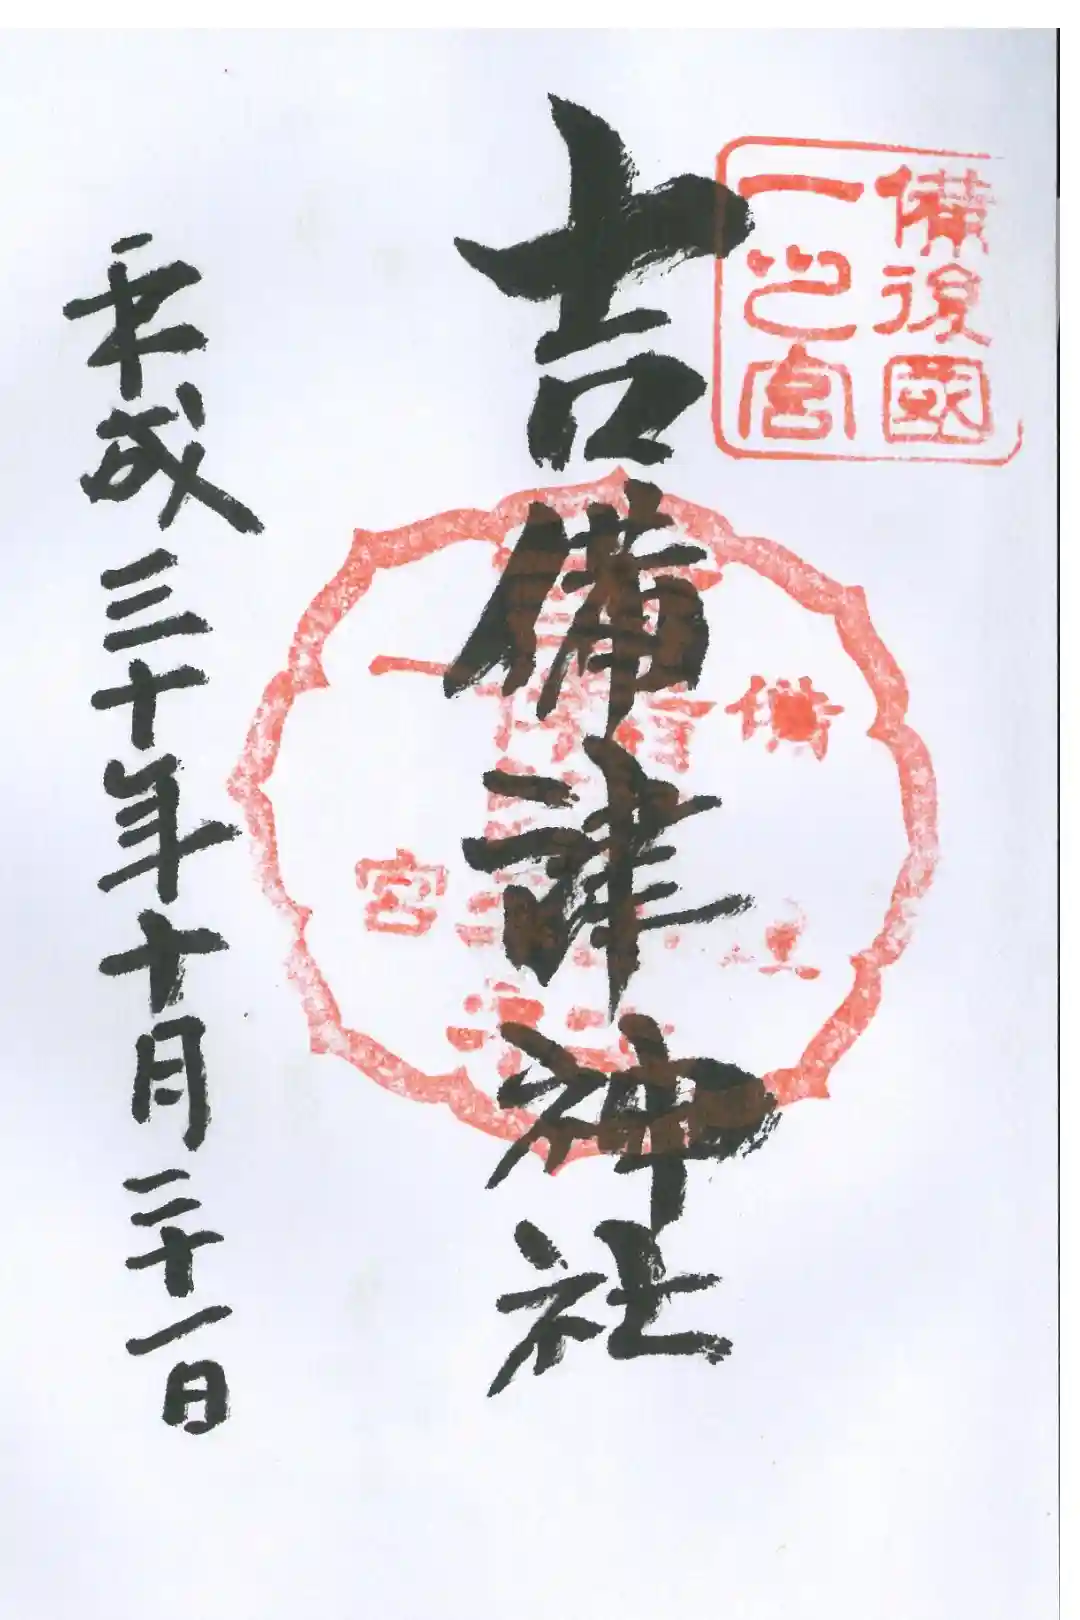 備後國
一之宮
吉備津神社
平成三十年十月二十一日
備
一
宮